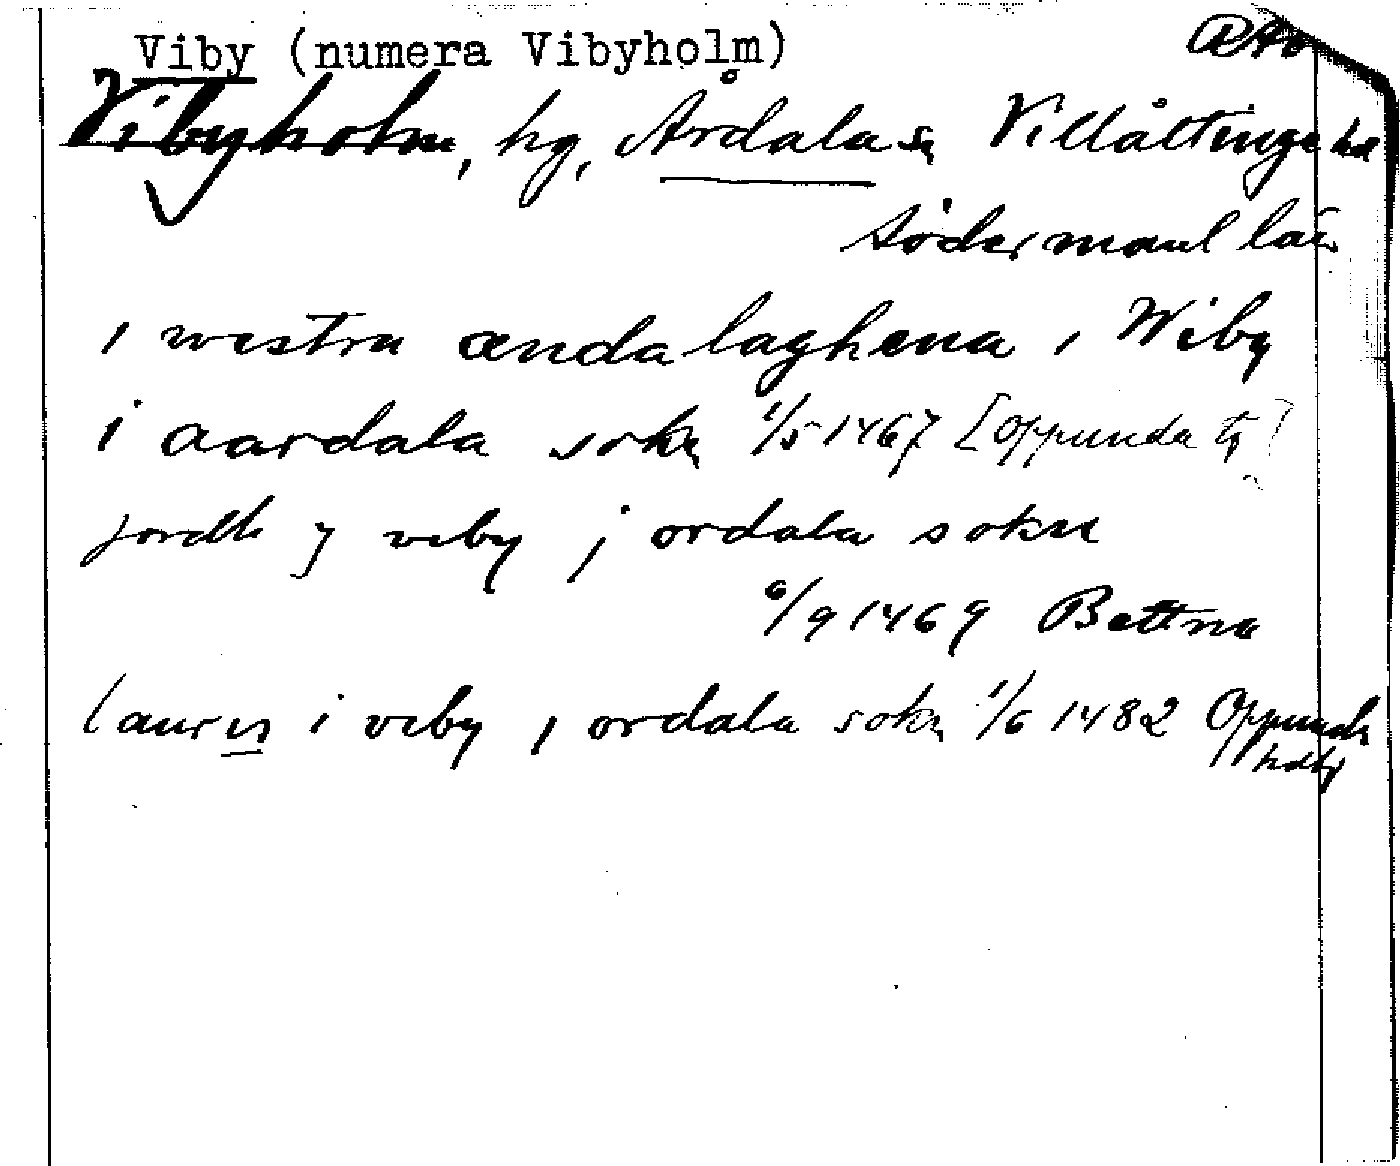 Viby (numera Vibyholm)
RAp
Vibyholm, hg, Årdala sn Villåttinge hd
Södermanl län
i westra ændalaghena i Wiby
i aardala sokn 1/5 1467 [Oppunda tg]
jordh j viby j ordala sokn
6/9 1469 Bettna
laurens i viby i ordala sokn 1/6 1482 Oppunda
hdtg